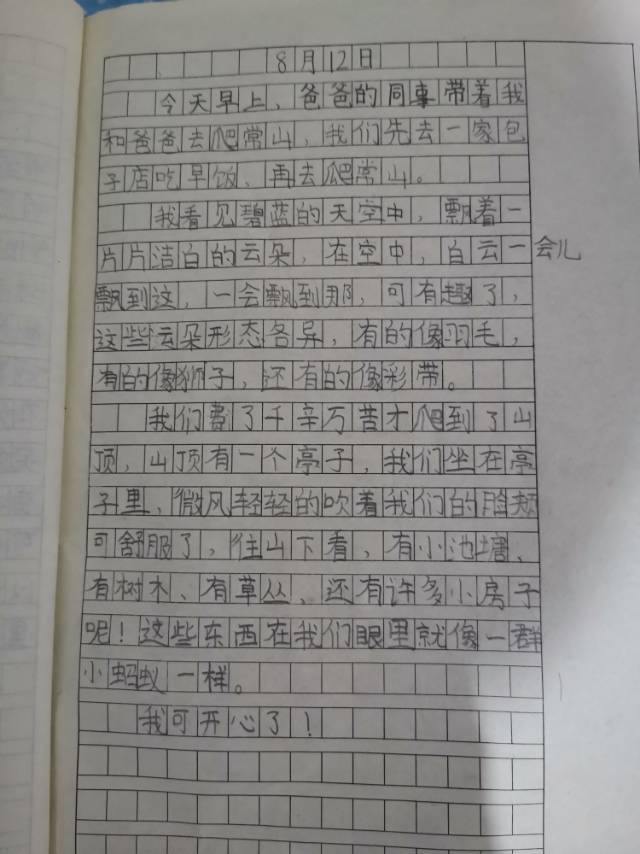 8月12日
今天早上、爸爸的同事带着我
和爸爸去爬常山，我们先去一家包
子店吃早饭、再去爬常山。
我看见碧蓝的天空中，飘着一
片片洁白的云朵，在空中，白云一会儿
飘到这，一会飘到那，可有趣了，
这些云朵形态各异，有的像羽毛，
有的像狮子，还有的像彩带。
我们费了千辛万苦才爬到了山
顶，山顶有一个亭子，我们坐在亭
子里、微风轻轻的吹着我们的脸颊
可舒服了，往山下看，有小池塘、
有树木、有草丛、还有许多小房子
呢！这些东西在我们眼里就像一群
小蚂蚁一样。
我可开心了！